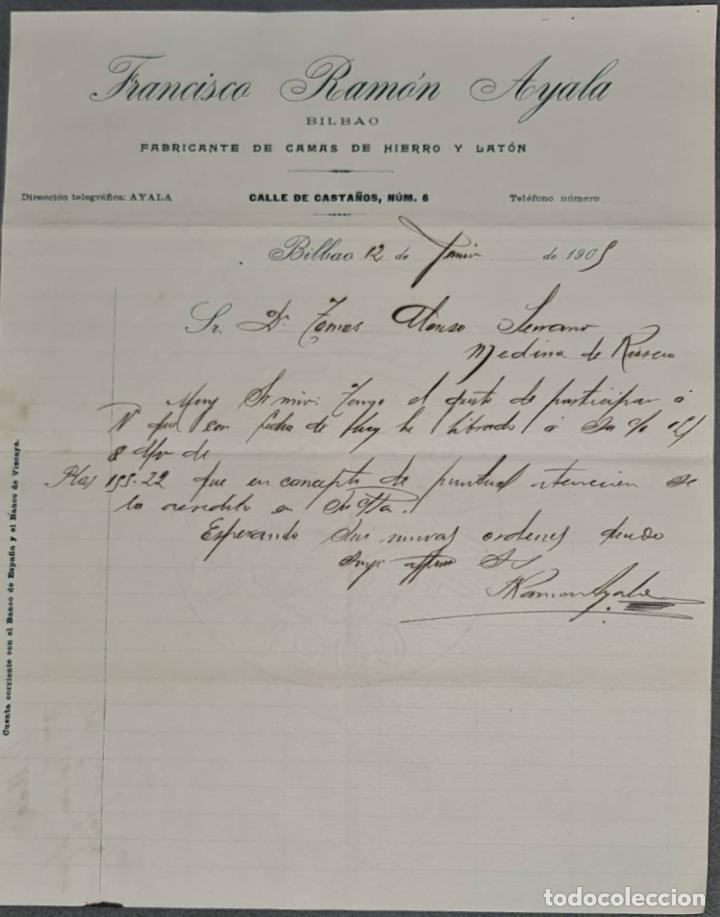 Francisco Ramón Ayala
BILBAO
FABRICANTE DE CAMAS DE HIERRO Y LATÓN
Dirección telegráfica: AYALA CALLE DE CASTAÑOS, NÚM. 6 Teléfono número
Bilbao 12 de Junio de 1905
Sr. Dn. Tomas Alonso Serrano
Medina de Rioseco
Muy Sr mio: Tengo el gusto de participar á
V que con fecha de Hoy he librado á su
8 d/v de
Ptas 155-22 que en concepto de puntual atencion se
lo acredito en S/Cta.
Esperando sus nuevas ordenes quedo
suyo affmo
F Ramon Ayala
Cuenta corriente con el Banco de España y el Banco de Vizcaya.
todocoleccion
todocoleccion.net